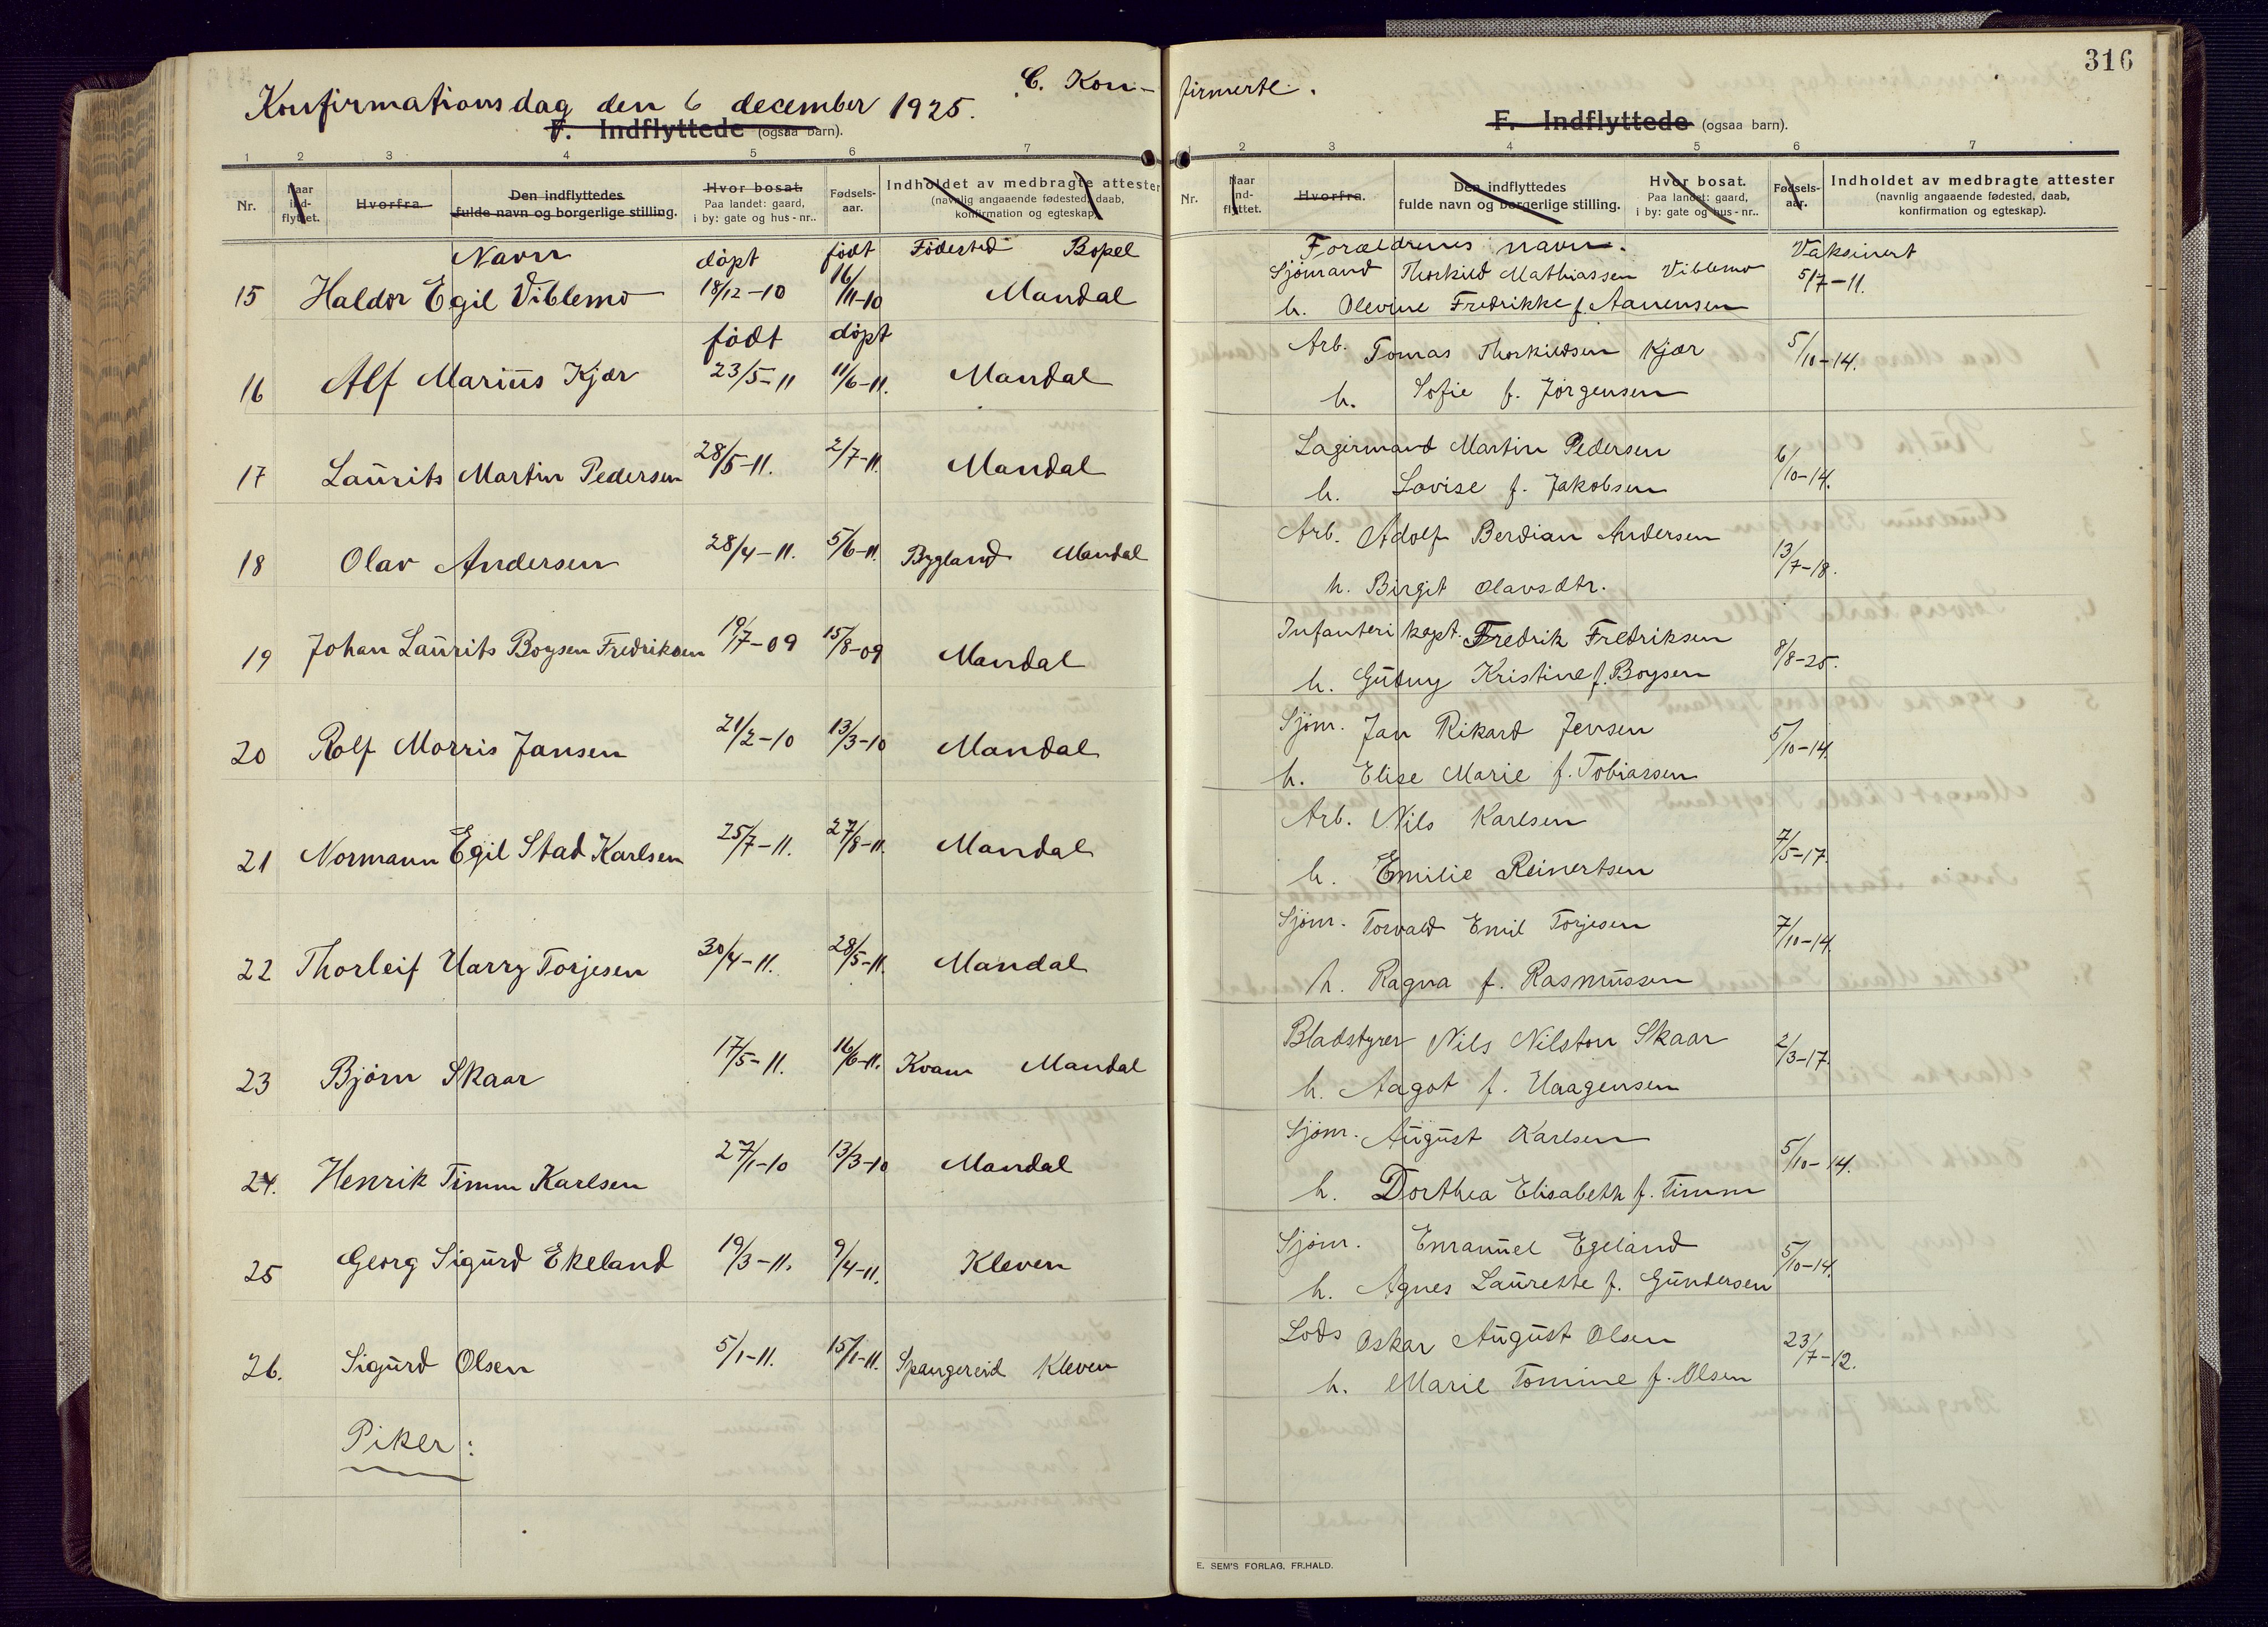 316
C. Kon- firmerte.
Konfirmationsdag den 6 december 1925.
F. Indflyttede (ogsaa barn).
1 2 3 4 5 6 7
Nr. Naar ind-flyttet. Hvorfra. Den indflyttedes fulde navn og borgerlige stilling. Hvor bosat. Paa landet: gaard, i by: gate og hus-nr.. Fødsels-aar. Indholdet av medbragte attester (navnlig angaaende fødested, daab, konfirmation og egteskap).
Navn døpt født Fødested Bopel
15 Haldor Egil Viblemo 18/12-10 16/11-10 Mandal
født døpt
16 Alf Marius Kjær 23/5-11 11/6-11. Mandal
17 Laurits Martin Pedersen 28/5-11. 2/7-11. Mandal
18 Olav Andersen 28/4-11. 5/6-11. Bygland Mandal
19 Johan Laurits Boysen Fredriksen 19/7-09 15/8-09 Mandal
20 Rolf Morris Jansen 21/2-10 13/3-10 Mandal
21 Normann Egil Stad Karlsen 25/7-11. 27/8-11. Mandal
22 Thorleif Harry Torjesen 30/4-11. 28/5-11. Mandal
23 Bjørn Skaar 17/5-11. 16/6-11. Kvam Mandal
24. Henrik Timm Karlsen 27/1-10 13/3-10 Mandal
25 Georg Sigurd Ekeland 19/3-11. 9/4-11. Kleven
26. Sigurd Olsen 5/1-11. 15/1-11. Spangereid Kleven
Piker:
F. Indflyttede (ogsaa barn).
1 2 3 4 5 6 7
Nr. Naar ind-flyttet. Hvorfra. Den indflyttedes fulde navn og borgerlige stilling. Hvor bosat. Paa landet: gaard, i by: gate og hus-nr.. Fødsels-aar. Indholdet av medbragte attester (navnlig angaaende fødested, daab, konfirmation og egteskap).
Forældrenes navn. Vaksinert
Sjømand Thorkild Mathiassen Viblemo 5/7-11.
h. Olevine Fredrikke f. Aanensen
Arb. Tomas Thorkildsen Kjær 5/10-14.
h. Sofie f. Jørgensen
Lagermand Martin Pedersen 6/10-14.
h. Lovise f. Jakobsen
Arb. Adolf Berdian Andersen 13/7-18.
h. Birgit Olavsdtr.
Infanterikapt. Fredrik Fredriksen 8/8-25.
h. Gudny Kristine f. Boysen
Sjøm. Jan Rikard Jensen 5/10-14.
h. Elise Marie f. Tobiassen
Arb. Nils Karlsen 7/5-17.
h. Emilie Reinertsen
Sjøm. Torvald Emil Torjesen 7/10-14.
h. Ragna f. Rasmussen
Bladstyrer Nils Nilston Skaar 2/3-17.
h. Aagot f. Haagensen
Sjøm. August Karlsen 5/10-14.
h. Dorthea Elisabeth f. Timm
Sjøm. Emanuel Egeland 5/10-14.
h. Agnes Laurette f. Gundersen
Lods Oskar August Olsen 23/7-12.
h. Marie Tomine f. Olsen
E. SEM'S FORLAG, FR.HALD.